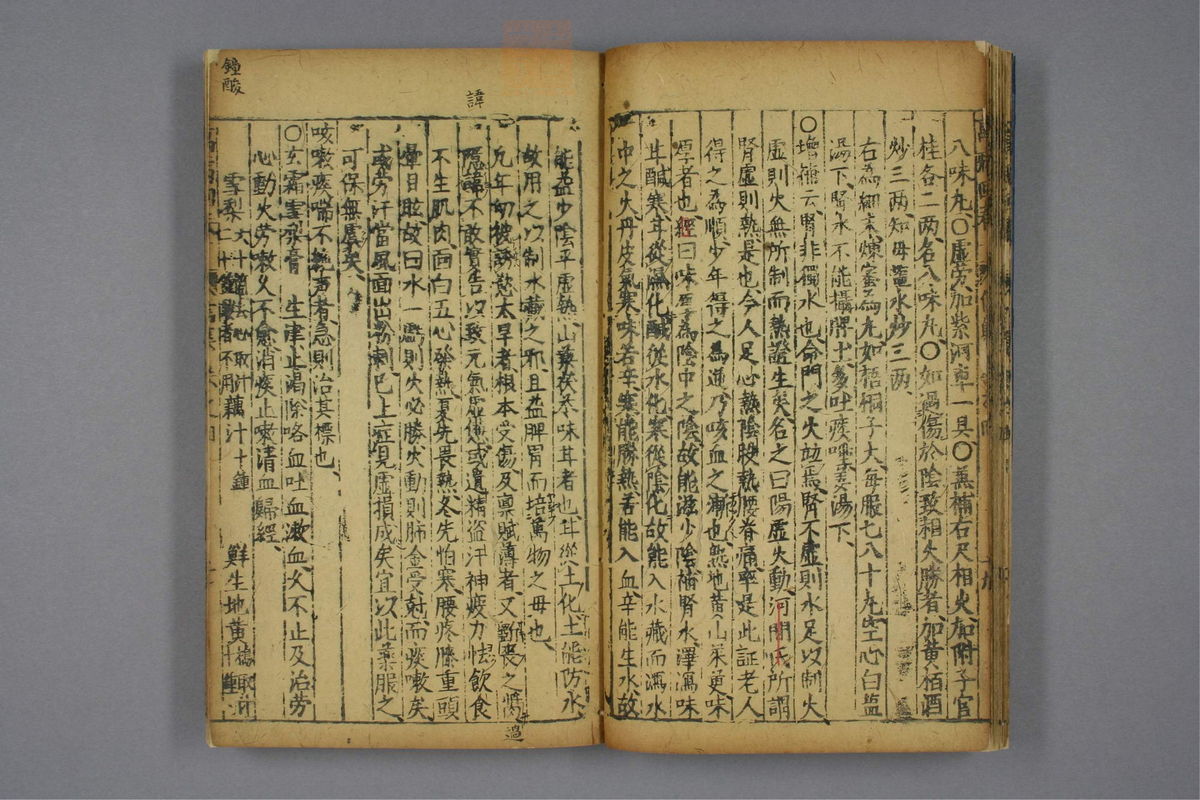 八味丸○虛勞加紫河車一具○蕪補右尺相火加附子官
桂各二两名八味丸○如遇傷於陰致相火勝者加黃栢酒
炒三两知母塩水炒三两
右為細末煉蜜為丸如梧桐子大每服七八十丸空心白塩
湯下腎水不能攝脾土多吐痰唾姜湯下
○云腎非獨水也命門之火並焉腎不虛則水足以制火
虛則火無所制而熱證生矣名之曰陽虛火動河間氏所謂
腎虛則熱是也今人足心熱陰股熱腰脊痛率是此証老人
得之為順少年得之為逆乃咳血之漸也熟地黃山茱更味
厚者也經曰味厚為陰中之陰故能滋少陰補腎水澤瀉味
甘鹹寒甘從濕化鹹從水化寒從陰化故能入水藏而瀉水
中之火丹皮氣寒味苦辛寒能勝熱苦能入血辛能生水故
能益少陰平虛熱山藥茯苓味甘者也甘從土化土能防水
故用之以制水藏之邪且益脾胃而培萬物之母也
凡年幼被誘慾太早者根本受傷及禀賦薄者又喪之過
隱諱不敢實告以致元氣虛憊或遺精盜汗神疲力怯飲食
不生肌肉面白五心發熱夏先畏熱冬先怕寒腰疼膝重頭
暈目眩故曰水一虧則火必勝火動則肺金受尅而痰嗽矣
或勞汗當風面出粉刺巳上症見虛損成矣宜以此藥服之
可保無虞矣
咳嗽痰喘不甚者急則治其標也
○玄霜雪梨膏 生津止渴除咯血吐血嗽血久不止及治勞
心動火勞嗽久不愈消痰止嗽清血歸經
雪梨 藕汁十鍾 鮮生地黃
諱
過
鐘酸